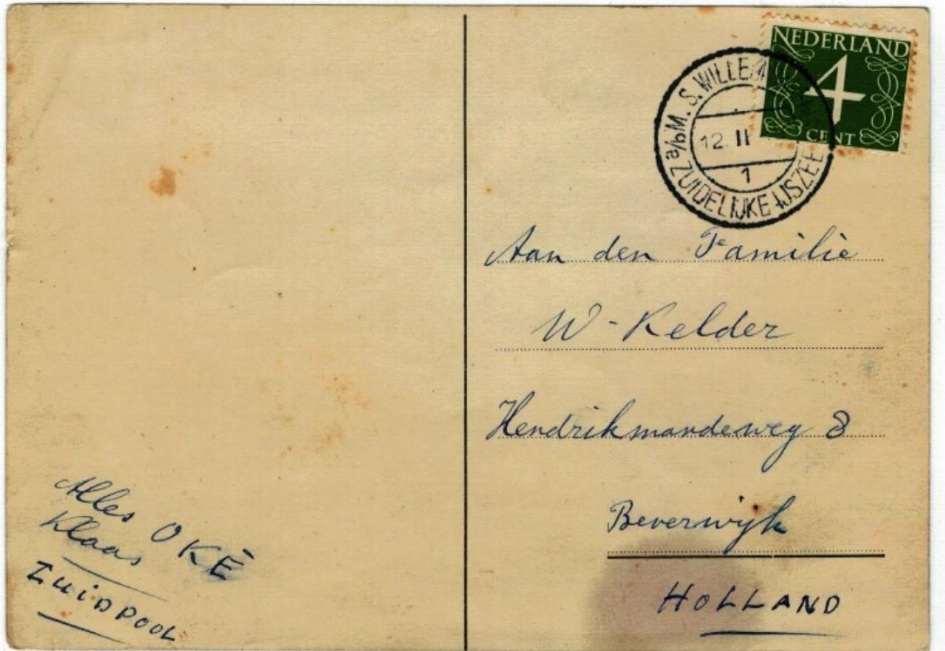 NEDERLAND
4
CENT
a/b M.S. WILLEM
12. II
1
ZUIDELIJKE IJSZEE
Aan den Familie
W-Kelder
Hendrikmandeweg 8
Beverwijk
HOLLAND
Alles OKÉ
Klaas
ZUIDPOOL